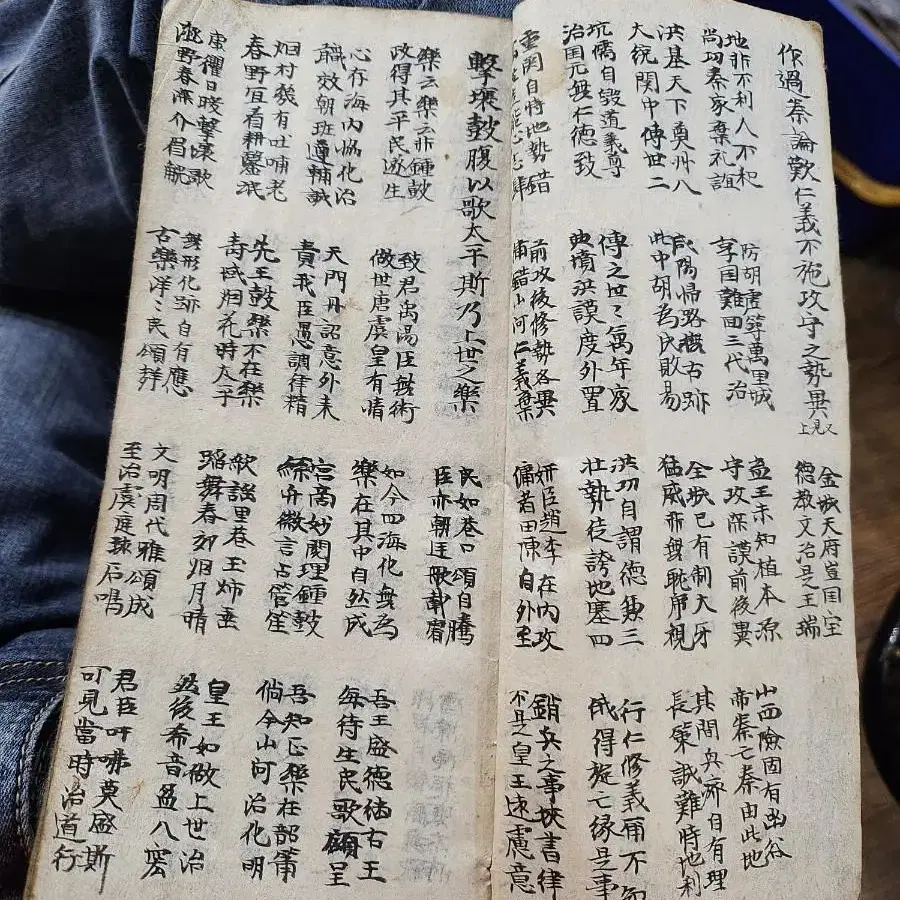 作過秦論歎仁義不施攻守之勢異
又見上
地非不利人不和
尚功秦家棄礼誼
防胡虛築萬里城
享国難回三代治
金城天府豈国宝
德教文治是王瑞
山西險固有函谷
帝秦亡秦由此地
洪基天下奠州八
大統関中傳世二
咸陽帰路撫古跡
此中胡為民敗易
孟王未知植本源
守攻深謨前後異
其間興亦自有理
長策誠難時地利
坑儒自毀道義尊
治国元無仁德致
傳之世々萬年家
典墳洪謨度外置
金城已有制犬牙
猛威亦無耽虎視
行仁修義爾不知
成得旋亡緣是事
重関自恃地勢錯
前攻後修勢各異
山河仁義棄
洪功自謂德兼三
壯勢徒誇地塞四
銷兵之事挾書律
不是皇王遠慮意
奸臣趙李在內攻
傭者田陳自外至
擊壤鼓腹以歌太平斯乃上世之樂
樂云樂云非鍾鼓
政得其平民遂生
致君禹湯臣無術
做世唐虞皇有情
民如巷口頌自騰
臣亦朝廷歌載賡
吾王盛德侔古王
每待生民歌願呈
心存海內協化治
職效朝班遵輔誠
天門丹詔意外未
責我臣愚調律精
如今四海化無為
樂在其中自然成
吾知正樂在韶箾
倘令山河治化明
烟村幾有吐哺老
春野宜看耕鑿氓
先王鼓樂不在樂
壽域烟花時太平
宮商妙閟理鍾鼓
微言占管笙
皇王如做上世治
然後希音益八宏
康衢日暖擊壤歌
野春深介眉觥
無形化跡自有應
古樂洋々民頌
歌謠里巷玉燭垂
蹈舞春郊烟月晴
君臣吁咈莫盛斯
可見當時治道行
文明周代雅頌成
至治虞庭球石鳴